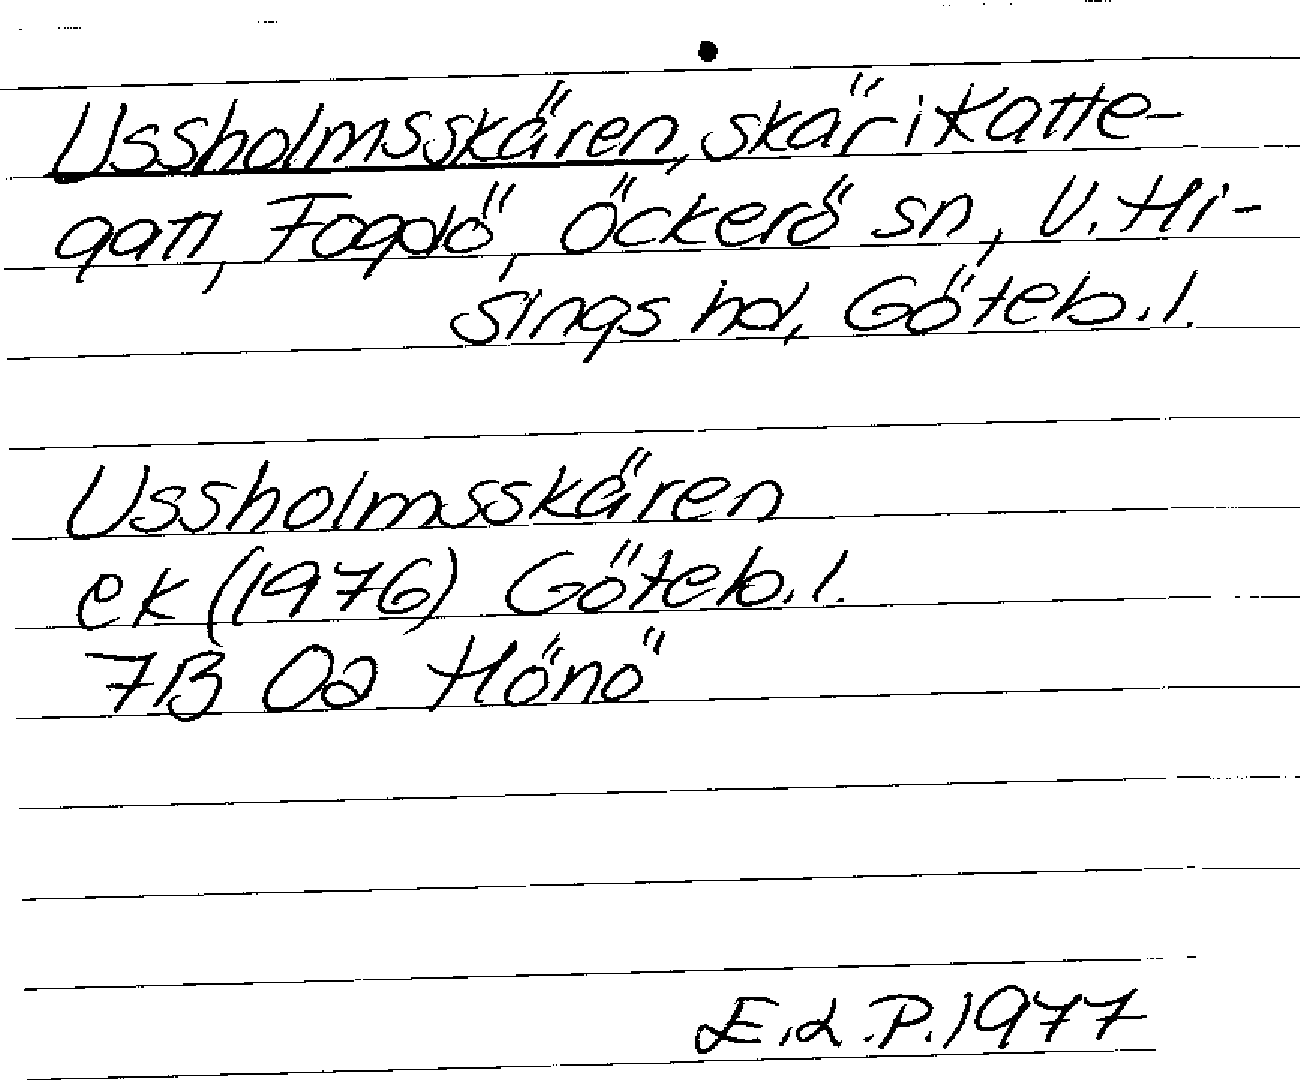 Ussholmsskären, skär i Katte-
gatt, Fogdö, Öckerö sn, V. Hi-
sings hd, Göteb. l.
Ussholmsskären
ek (1976) Göteb. l.
7B 0a Hönö
E.L.P. 1977